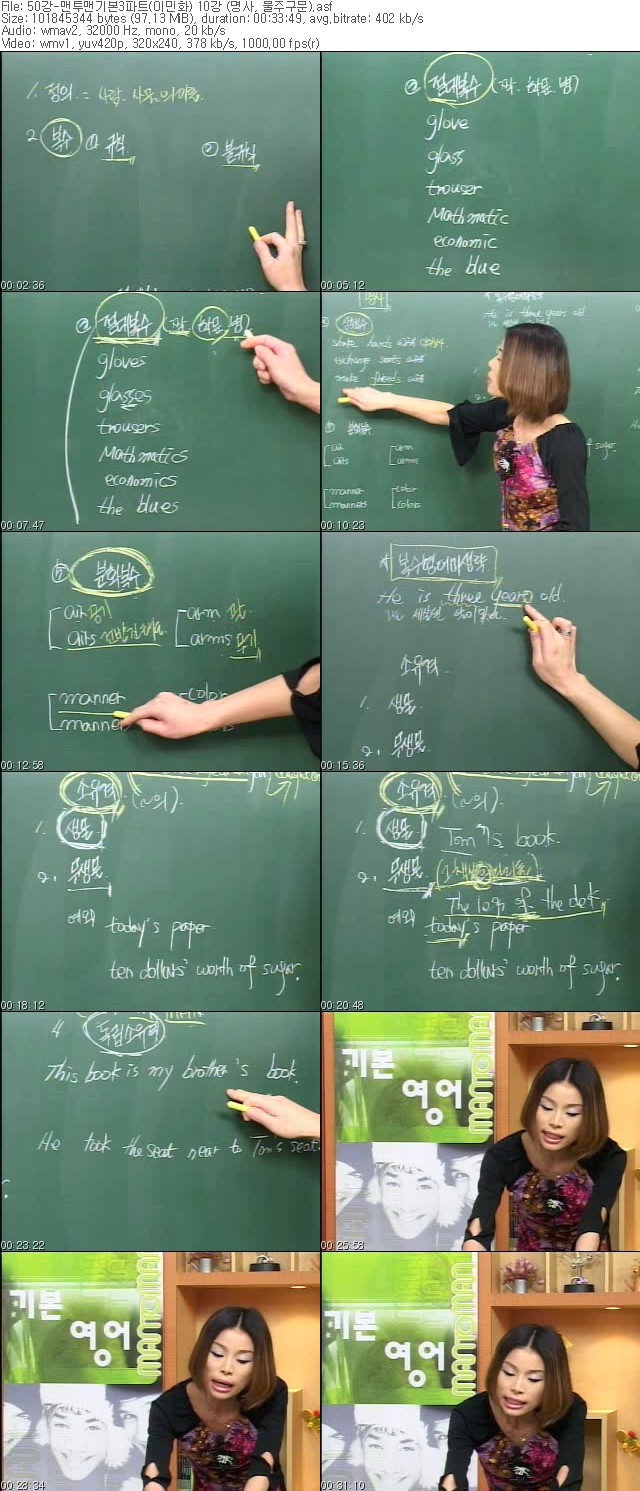 File: 50강-맨투맨기본3파트(이민화) 10강 (명사, 물주구문).asf
Size: 101845344 bytes (97,13 MiB), duration: 00:33:49, avg.bitrate: 402 kb/s
Audio: wmav2, 32000 Hz, mono, 20 kb/s
Video: wmv1, yuv420p, 320x240, 378 kb/s, 1000,00 fps(r)
1. 정의 = 사람. 사물의 이름.
2. 복수 ① 규칙. ② 불규칙
00:02:36
ⓐ 절대복수 (짝. 학문. 병)
glove
glass
trouser
Mathmatic
economic
the blue
00:05:12
ⓐ 절대복수 (짝. 학문. 병)
gloves
glasses
trousers
Mathmatics
economics
the blues
00:07:47
명사
He is three years old
shake hands with
exchange seats with
make friends with
ⓑ 분화복수
air
airs
arm
arms
manner
manners
color
colors
of sugar.
00:10:23
ⓑ 분화복수
air 공기
airs
arm 팔
arms 무기
manner
manner
color
00:12:58
* 복수형어미생략
He is three years old.
소유격.
1. 생물.
2. 무생물.
00:15:36
소유격 (~의).
1. 생물
2. 무생물.
예외 today's paper
ten dollars' worth of sugar.
00:18:12
소유격 (~의).
1. 생물. Tom's book.
2. 무생물.
The legs of the desk.
예외 today's paper
ten dollars' worth of sugar.
00:20:48
4 독립소유격
This book is my brother's book.
He took the seat near to Tom's seat.
00:23:22
기본
영어
MANTOMAN
00:25:58
기본
영어
MANTOMAN
00:28:34
기본
영어
MANTOMAN
00:31:10